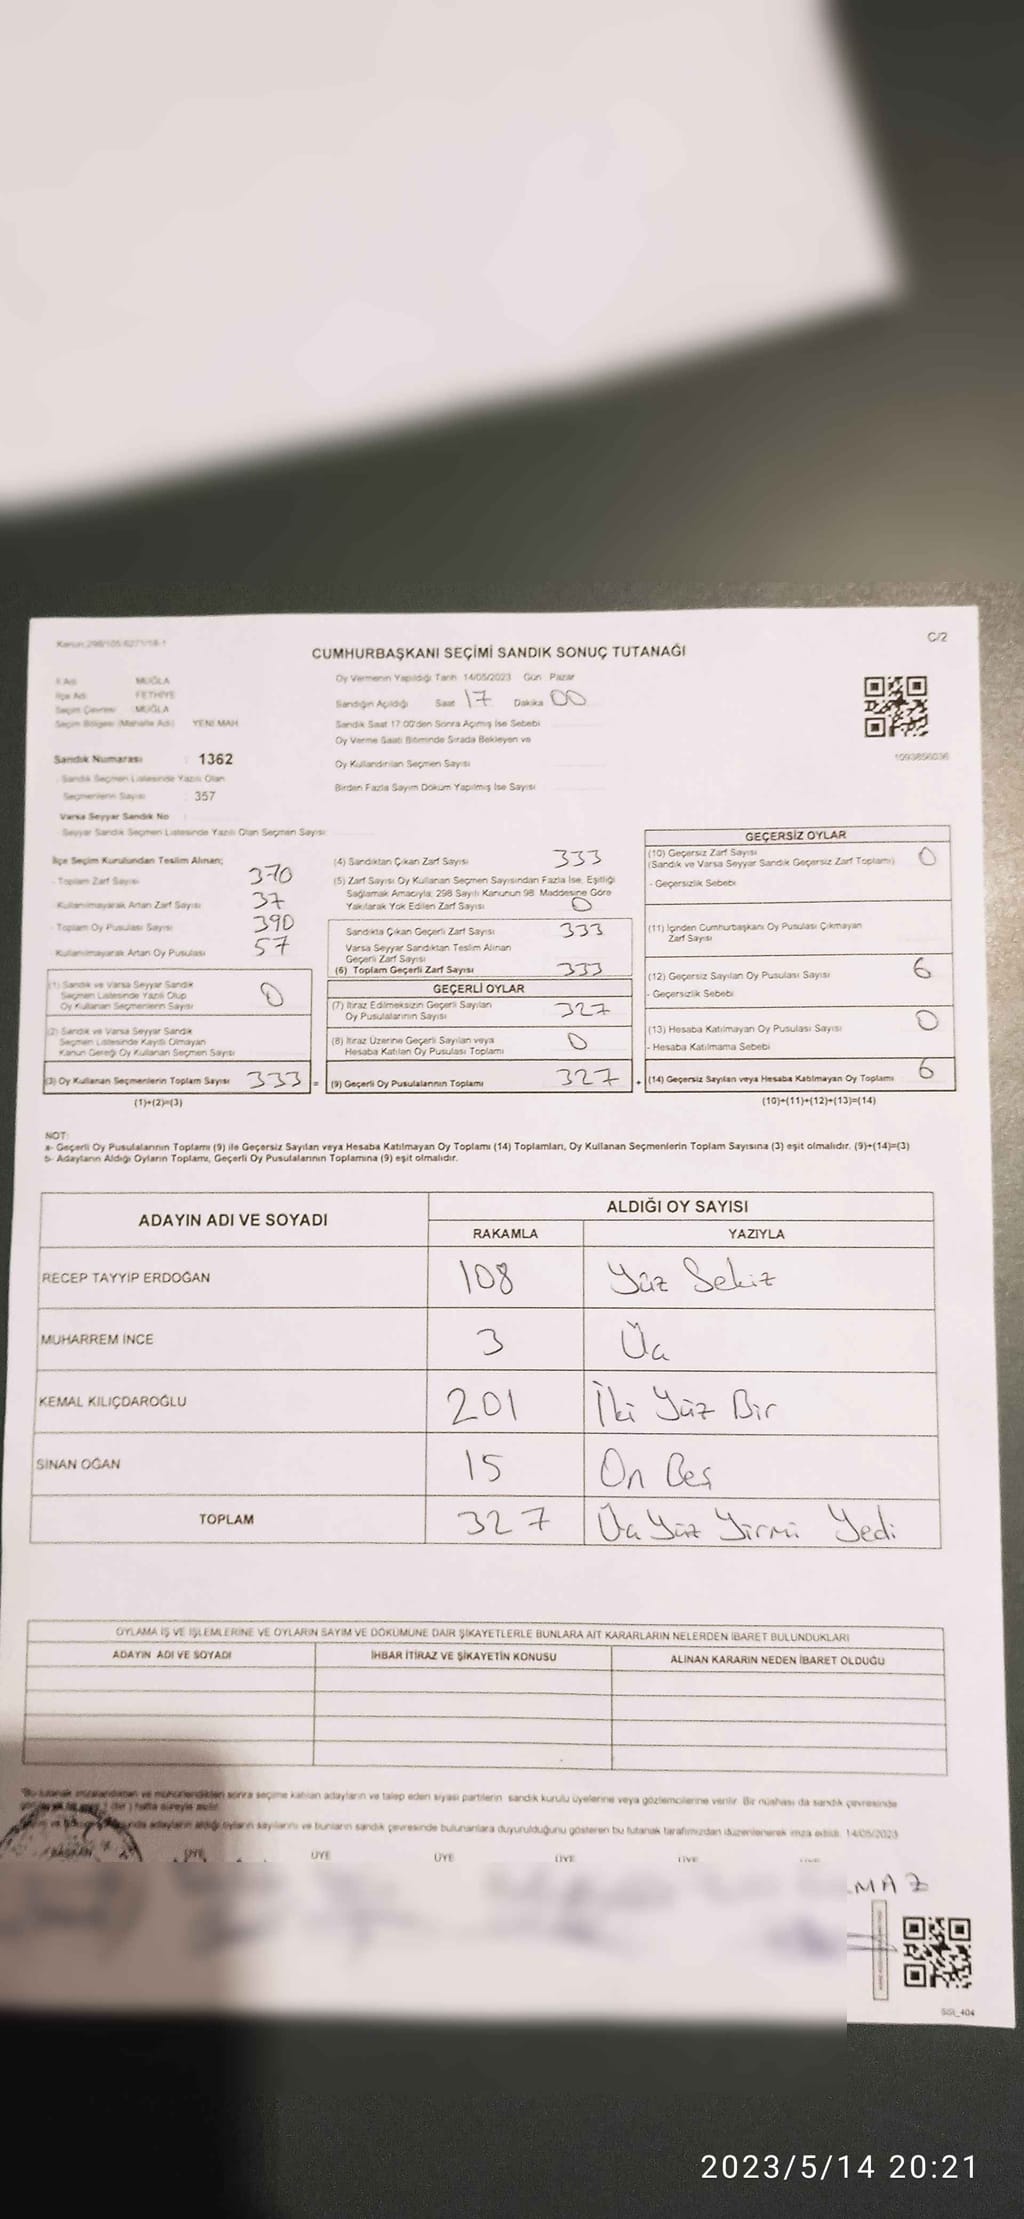 C/2
CUMHURBAŞKANI SEÇİMİ SANDIK SONUÇ TUTANAĞI
İl Adı MUĞLA
İlçe Adı FETHİYE
Seçim Çevresi MUĞLA
Seçim Bölgesi (Mahalle Adı) YENİ MAH
Sandık Numarası : 1362
Sandık Seçmen Listesinde Yazılı Olan
Seçmenlerin Sayısı : 357
Varsa Seyyar Sandık No
Seyyar Sandık Seçmen Listesinde Yazılı Olan Seçmen Sayısı
Oy Vermenin Yapıldığı Tarih 14/05/2023 Gün Pazar
Sandığın Açıldığı Saat 17 Dakika 00
Sandık Saat 17:00'den Sonra Açılmış İse Sebebi
Oy Verme Saati Bitiminde Sırada Bekleyen ve
Oy Kullandırılan Seçmen Sayısı
Birden Fazla Sayım Döküm Yapılmış İse Sayısı
1093856036
İlçe Seçim Kurulundan Teslim Alınan;
- Toplam Zarf Sayısı 370
- Kullanılmayarak Artan Zarf Sayısı 37
- Toplam Oy Pusulası Sayısı 390
- Kullanılmayarak Artan Oy Pusulası 57
(1) Sandık ve Varsa Seyyar Sandık
Seçmen Listesinde Yazılı Olup
Oy Kullanan Seçmenlerin Sayısı 0
(2) Sandık ve Varsa Seyyar Sandık
Seçmen Listesinde Kayıtlı Olmayan
Kanun Gereği Oy Kullanan Seçmen Sayısı
(3) Oy Kullanan Seçmenlerin Toplam Sayısı 333 =
(1)+(2)=(3)
(4) Sandıktan Çıkan Zarf Sayısı 333
(5) Zarf Sayısı Oy Kullanan Seçmen Sayısından Fazla İse, Eşitliği
Sağlamak Amacıyla; 298 Sayılı Kanunun 98. Maddesine Göre
Yakılarak Yok Edilen Zarf Sayısı 0
Sandıkta Çıkan Geçerli Zarf Sayısı 333
Varsa Seyyar Sandıktan Teslim Alınan
Geçerli Zarf Sayısı
(6) Toplam Geçerli Zarf Sayısı 333
GEÇERLİ OYLAR
(7) İtiraz Edilmeksizin Geçerli Sayılan
Oy Pusulalarının Sayısı 327
(8) İtiraz Üzerine Geçerli Sayılan veya
Hesaba Katılan Oy Pusulası Toplamı 0
(9) Geçerli Oy Pusulalarının Toplamı 327 +
GEÇERSİZ OYLAR
(10) Geçersiz Zarf Sayısı 0
(Sandık ve Varsa Seyyar Sandık Geçersiz Zarf Toplamı)
- Geçersizlik Sebebi
(11) İçinden Cumhurbaşkanı Oy Pusulası Çıkmayan
Zarf Sayısı
(12) Geçersiz Sayılan Oy Pusulası Sayısı 6
- Geçersizlik Sebebi
(13) Hesaba Katılmayan Oy Pusulası Sayısı 0
- Hesaba Katılmama Sebebi
(14) Geçersiz Sayılan veya Hesaba Katılmayan Oy Toplamı 6
(10)+(11)+(12)+(13)=(14)
NOT:
a- Geçerli Oy Pusulalarının Toplamı (9) ile Geçersiz Sayılan veya Hesaba Katılmayan Oy Toplamı (14) Toplamları, Oy Kullanan Seçmenlerin Toplam Sayısına (3) eşit olmalıdır. (9)+(14)=(3)
b- Adayların Aldığı Oyların Toplamı, Geçerli Oy Pusulalarının Toplamına (9) eşit olmalıdır.
ADAYIN ADI VE SOYADI ALDIĞI OY SAYISI
RAKAMLA YAZIYLA
RECEP TAYYİP ERDOĞAN 108 Yüz Sekiz
MUHARREM İNCE 3 Üç
KEMAL KILIÇDAROĞLU 201 İki Yüz Bir
SİNAN OĞAN 15 On Beş
TOPLAM 327 Üç Yüz Yirmi Yedi
OYLAMA İŞ VE İŞLEMLERİNE VE OYLARIN SAYIM VE DÖKÜMÜNE DAİR ŞİKAYETLERLE BUNLARA AİT KARARLARIN NELERDEN İBARET BULUNDUKLARI
ADAYIN ADI VE SOYADI İHBAR İTİRAZ VE ŞİKAYETİN KONUSU ALINAN KARARIN NEDEN İBARET OLDUĞU
sonra seçime katılan adayların ve talep eden siyasi partilerin sandık kurulu üyelerine veya gözlemcilerine verilir. Bir nüshası da sandık çevresinde
adayların aldığı oyların sayılarını ve bunların sandık çevresinde bulunanlara duyurulduğunu gösteren bu tutanak tarafımızdan düzenlenerek imza edildi. 14/05/2023
BAŞKAN ÜYE ÜYE ÜYE ÜYE ÜYE
MAZ
SISI_404
2023/5/14 20:21